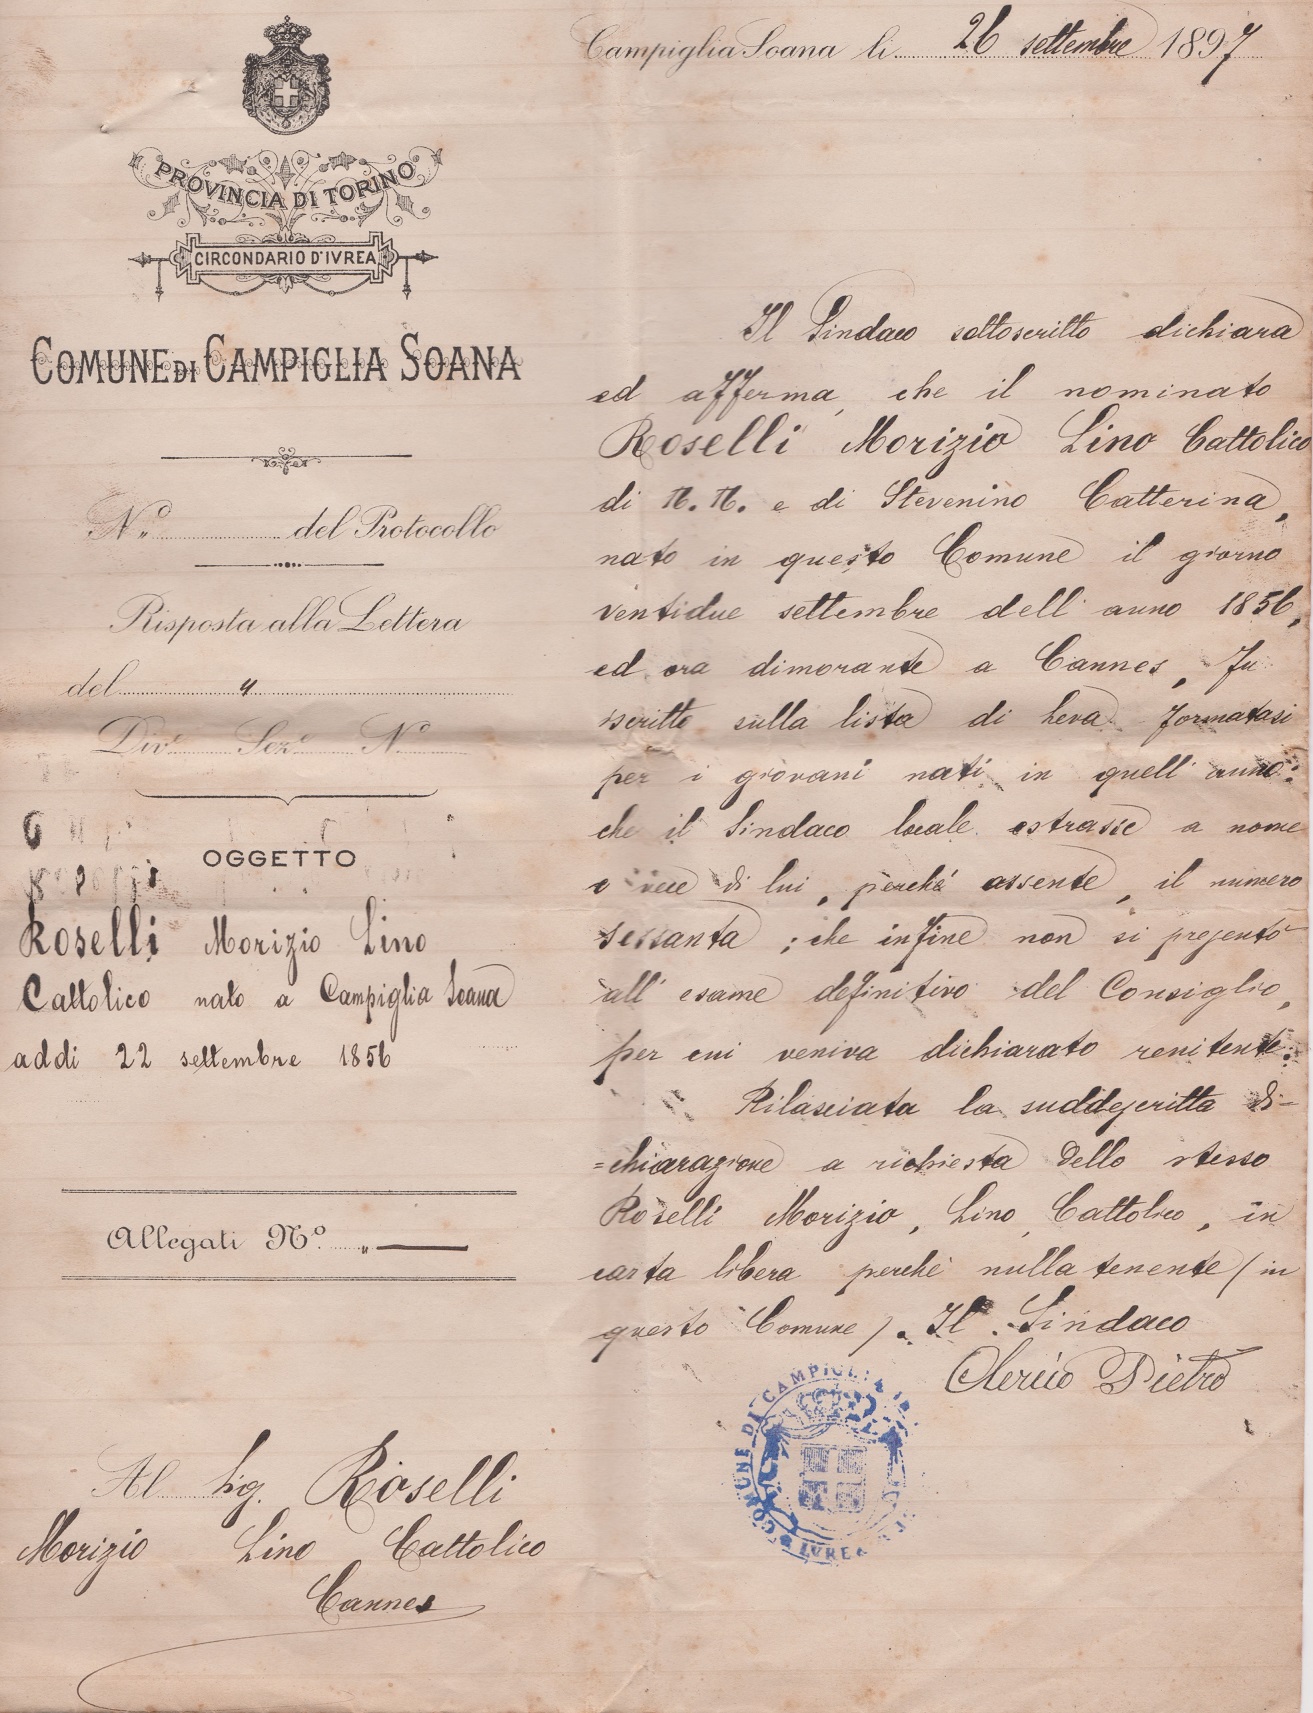 PROVINCIA DI TORINO
CIRCONDARIO D'IVREA
COMUNE DI CAMPIGLIA SOANA
N.º del Protocollo
Risposta alla Lettera
del "
Div.e Sez.e N.º
OGGETTO
Roselli Morizio Lino
Cattolico nato a Campiglia Soana
addi 22 settembre 1856
Allegati N.º "
Al Sig. Roselli
Morizio Lino Cattolico
Cannes
Campiglia Soana li 26 settembre 1897
Il Sindaco sottoscritto dichiara
ed afferma, che il nominato
Roselli Morizio Lino Cattolico
di N. N. e di Stevenino Catterina,
nato in questo Comune il giorno
ventidue settembre dell' anno 1856,
ed ora dimorante a Cannes, fu
iscritto sulla lista di leva formatasi
per i giovani nati in quell' anno:
che il Sindaco locale estrasse a nome
e vece di lui, perché assente, il numero
sessanta; che infine non si presentò
all' esame definitivo del Consiglio,
per cui veniva dichiarato renitente:
Rilasciata la suddescritta di-
=chiarazione a richiesta dello stesso
Roselli Morizio, Lino, Cattolico, in
carta libera perchè nulla tenente (in
questo Comune). Il Sindaco
Clerico Pietro
COMUNE DI CAMPIGLIA
IVREA